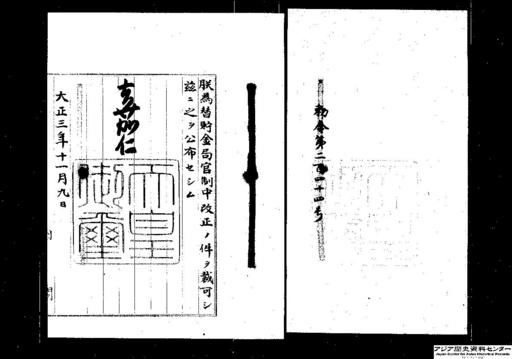 勅令第二百四十四号
朕為替貯金局官制中改正ノ件ヲ裁可シ
茲ニ之ヲ公布セシム
嘉仁
天皇
御璽
大正三年十一月九日
アジア歴史資料センター
Japan Center for Asian Historical Records